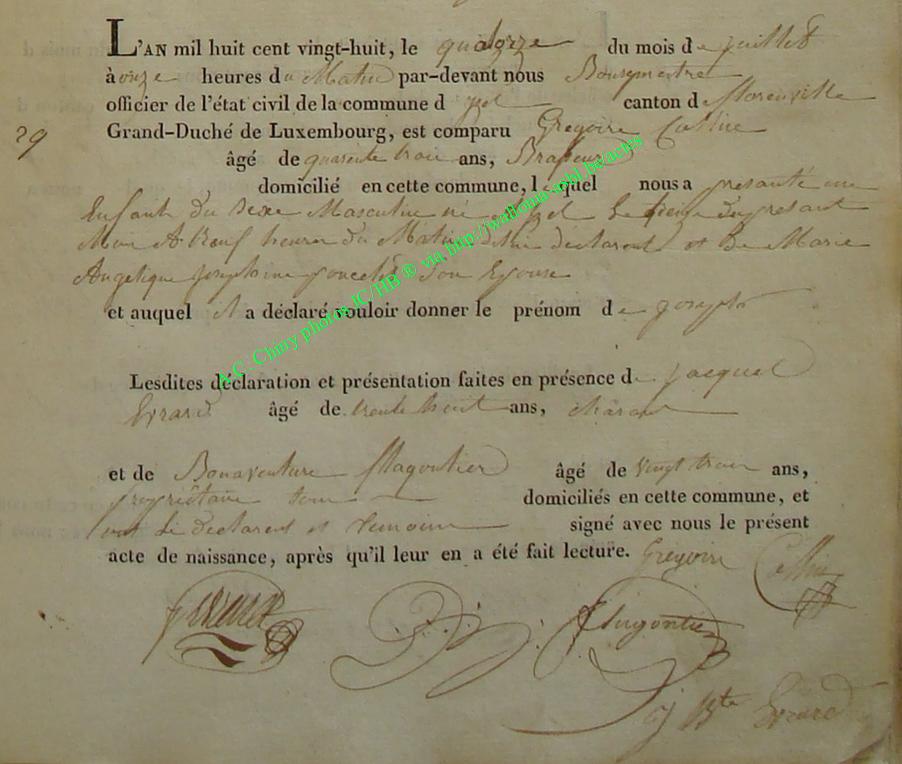 L'AN mil huit cent vingt-huit, le quatorze du mois de juillet
à onze heures du Matin par-devant nous Bourgmestre
officier de l'état civil de la commune d' canton de florenville
29
Grand-Duché de Luxembourg, est comparu Gregoire Collin
âgé de quarente trois ans, Brasseur
domicilié en cette commune, lequel nous a presanté un
Enfant du Sexe Masculin né a le du presant
Mois A heures du Matin de lui déclarant et de Marie
Angelique Josephine poncelet Son Epouse
et auquel il a déclaré vouloir donner le prénom de joseph
A.C. Chiny photos JC/HB ® via http://wallonia-asbl.be/actes
Lesdites déclaration et présentation faites en présence de jacque
Evrard âgé de trente huit ans,
et de Bonaventure âgé de vingt trois ans,
propriétaire domiciliés en cette commune, et
ont le declarent et temoins signé avec nous le présent
acte de naissance, après qu'il leur en a été fait lecture. Gregoire Collin
j Evrard
B.
j Bte Evrard